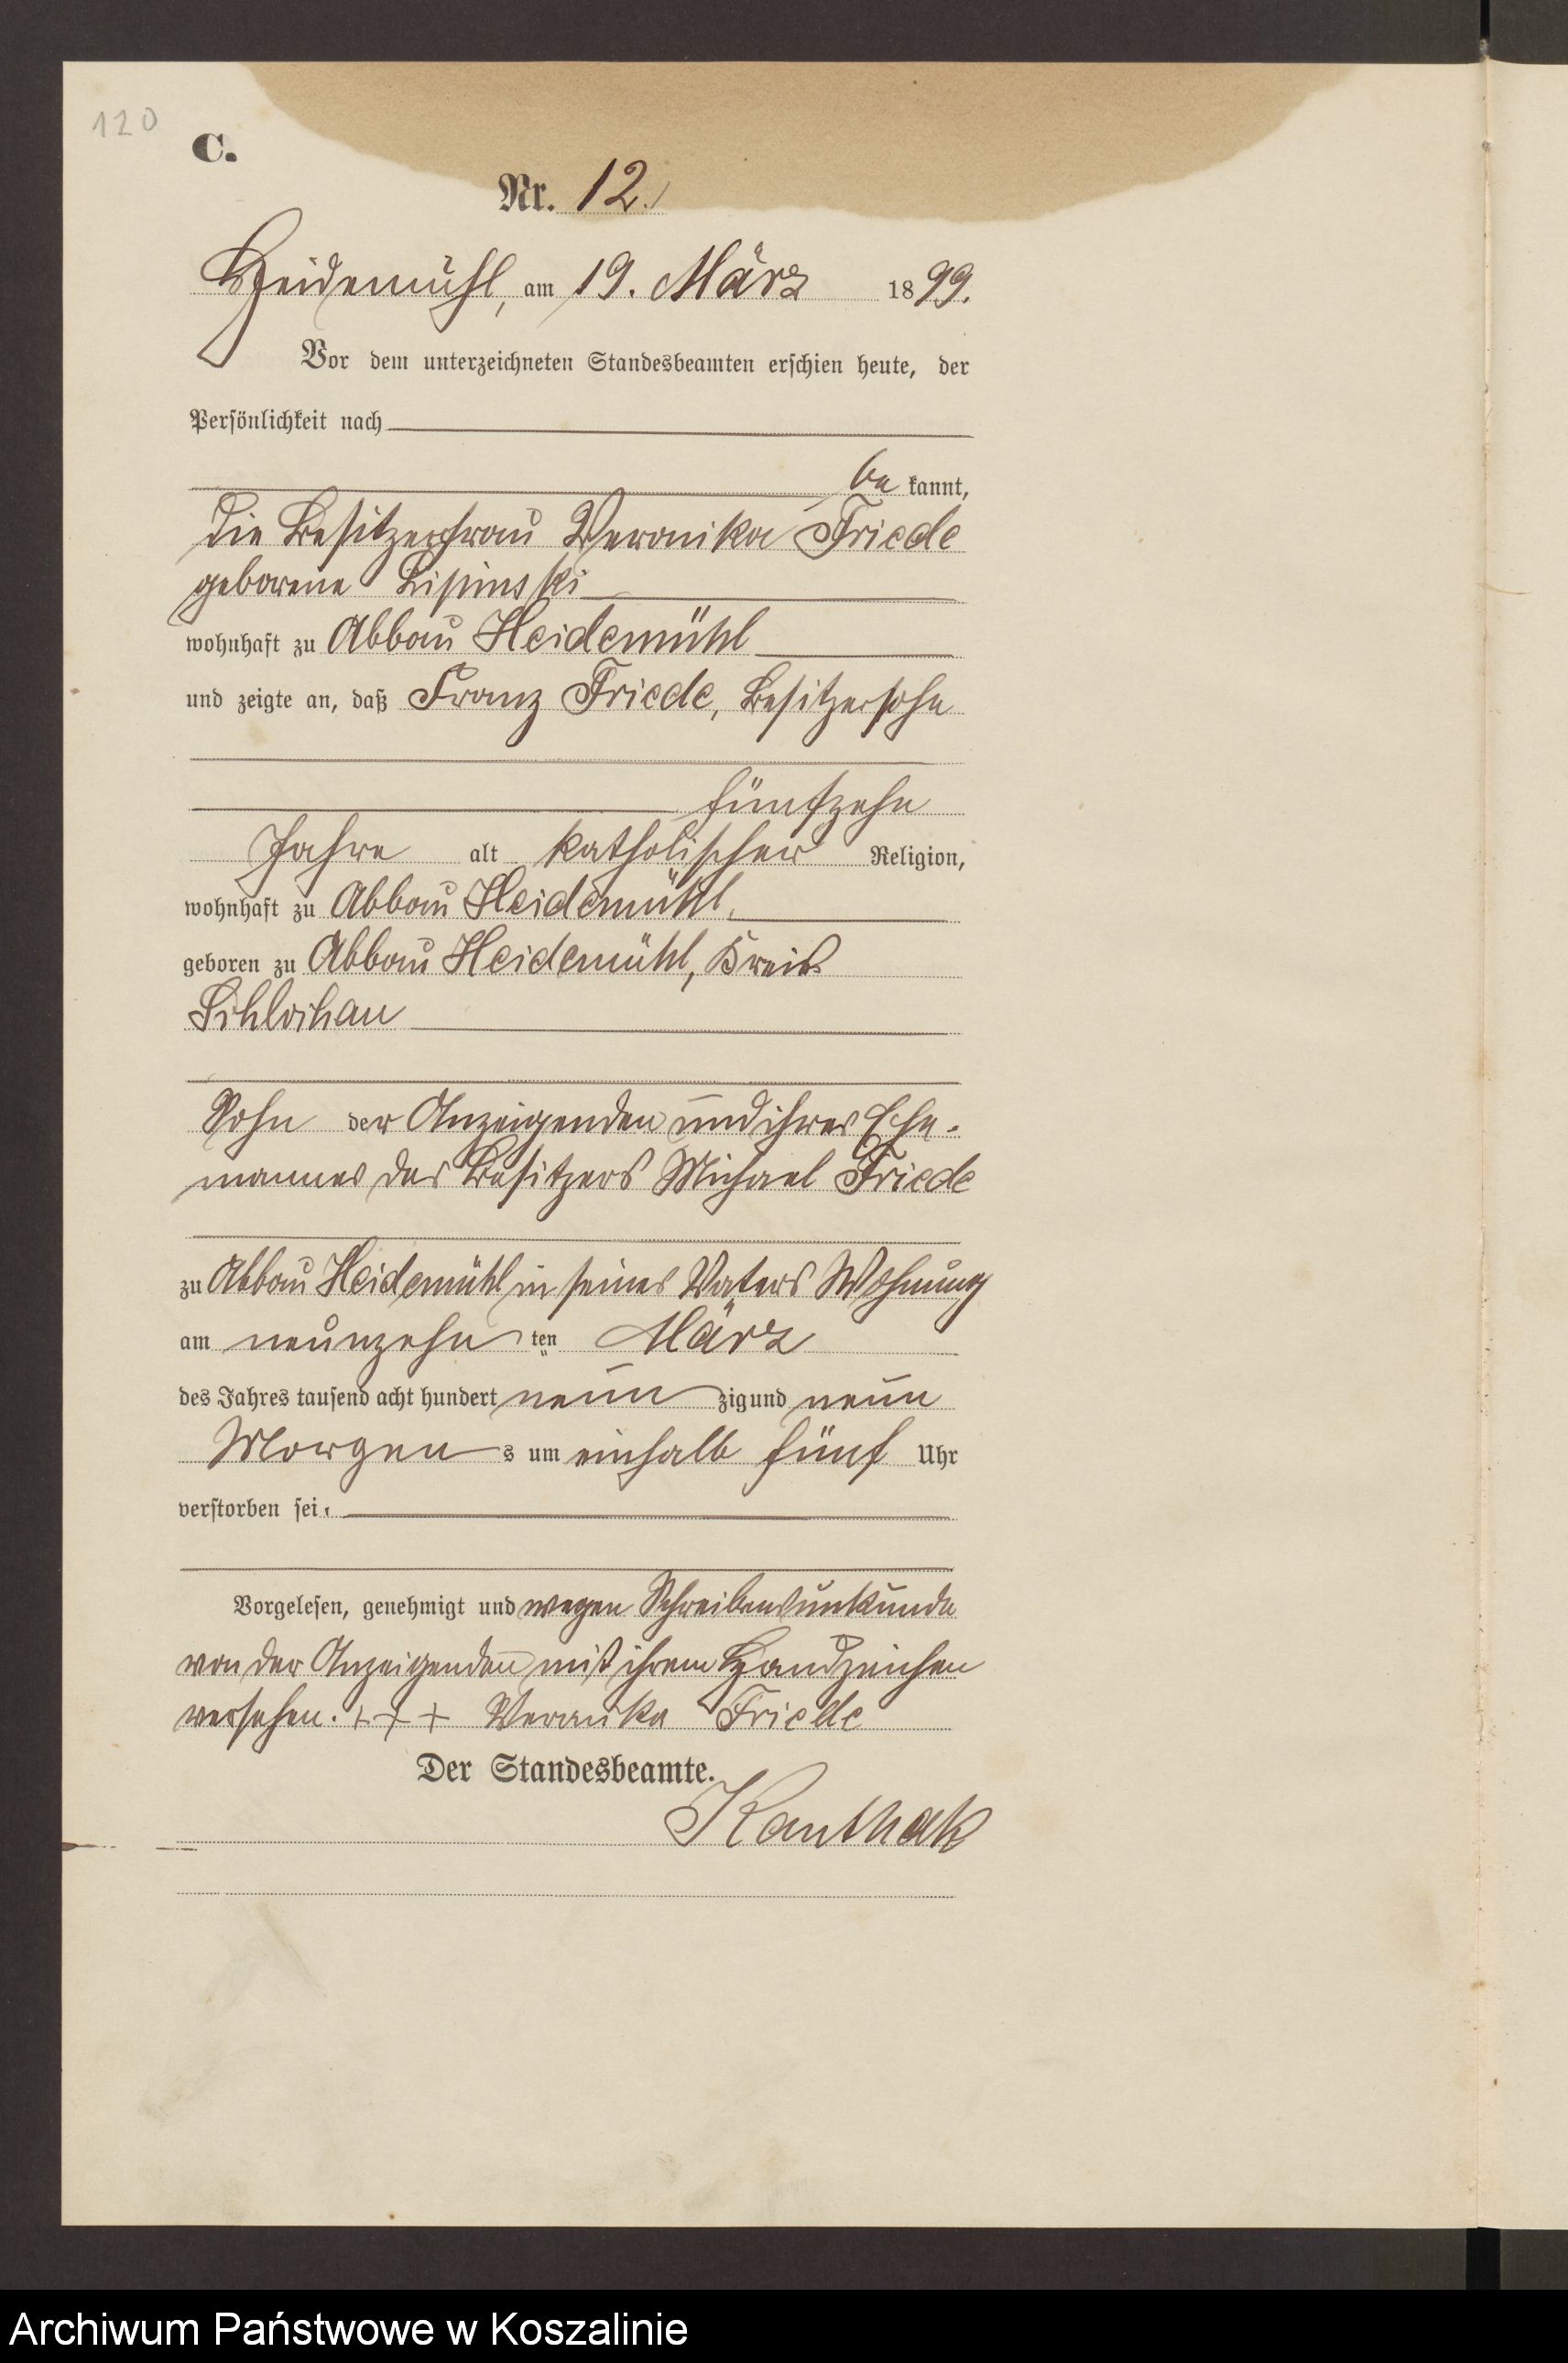 120
C.
Nr. 12.
Heidemühl, am 19. März 1899.
Vor dem unterzeichneten Standesbeamten erschien heute, der
Persönlichkeit nach
be kannt,
die Besitzerfrau Veronika Friede
geborene Lipinski
wohnhaft zu Abbau Heidemühl
und zeigte an, daß Franz Friede, Besitzersohn
fünfzehn
Jahre alt katholischer Religion,
wohnhaft zu Abbau Heidemühl,
geboren zu Abbau Heidemühl, Kreis
Schlochau
Sohn der Anzeigenden und ihres Ehe-
mannes des Besitzers Michael Friede
zu Abbau Heidemühl in seines Vaters Wohnung
am neunzehn ten März
des Jahres tausend acht hundert neun zig und neun
Morgen s um einhalb fünf Uhr
verstorben sei.
Vorgelesen, genehmigt und wegen Schreibensunkunde
von der Anzeigenden mit ihrem Handzeichen
versehen. +++ Veronika Friede
Der Standesbeamte.
Kanthak
Archiwum Państwowe w Koszalinie